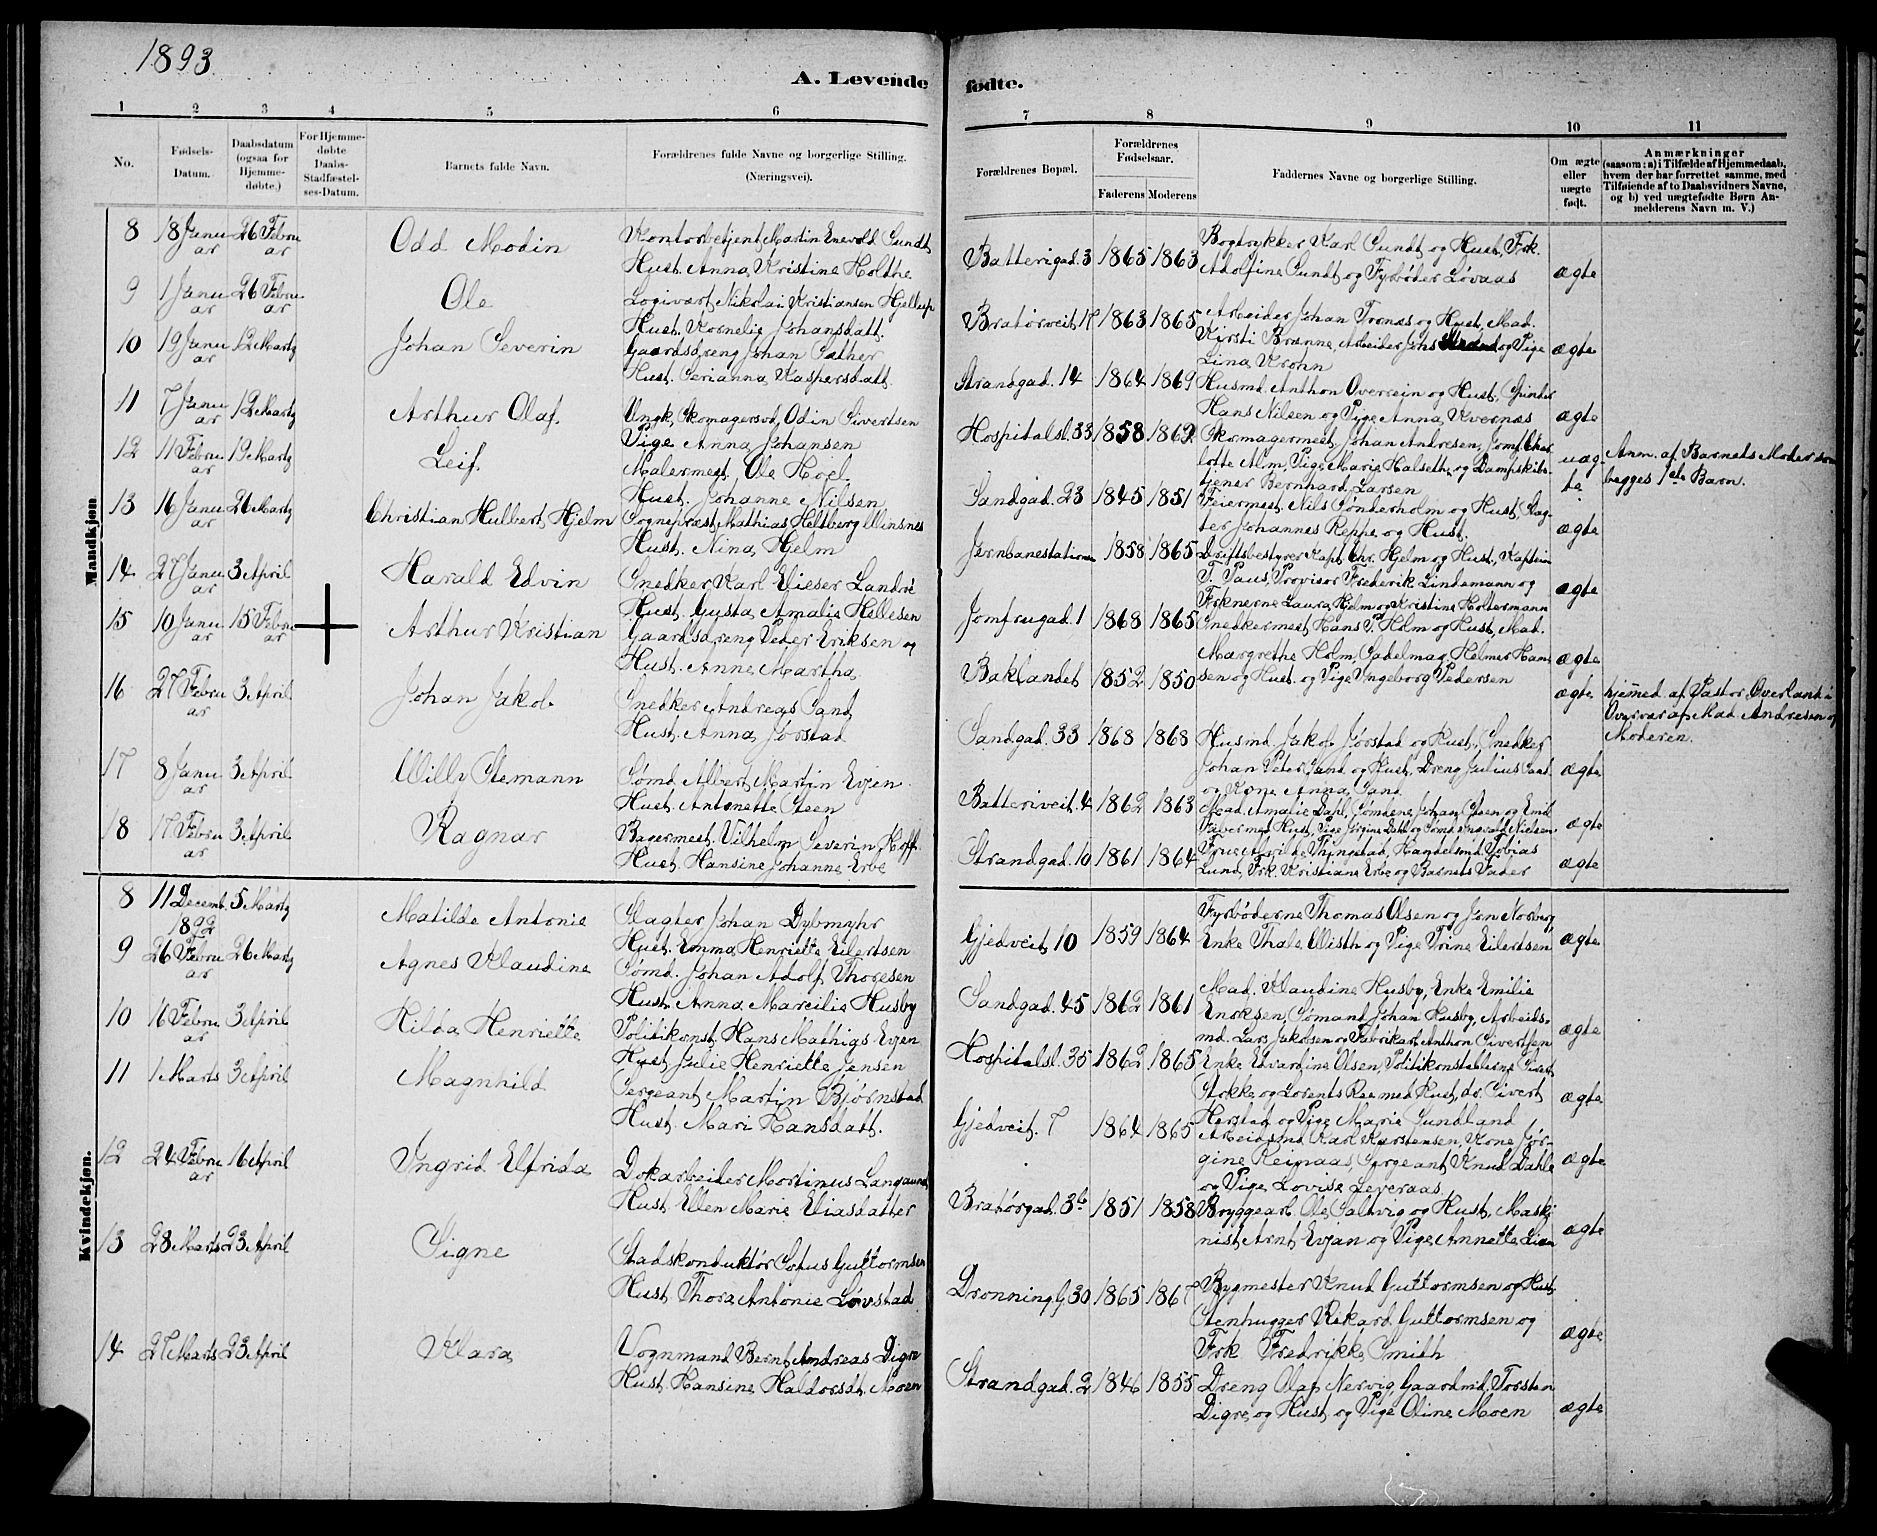 1893
A. Levende
fødte.
1 2 3 4 5 6
7 8 9 10 11
No.
Fødsels-
Datum.
Daabsdatum
(ogsaa for
Hjemme-
døbte.)
For Hjemme-
døbte
Daabs-
Stadfæstel-
ses-Datum.
Barnets fulde Navn.
Forældrenes fulde Navne og borgerlige Stilling.
(Næringsvei).
Forældrenes Bopæl.
Forældrenes
Fødselsaar.
Faderens Moderens
Faddernes Navne og borgerlige Stilling.
Om ægte
eller
uægte
født.
Anmærkninger
(saasom: a) i Tilfælde af Hjemmedaab,
hvem der har forrettet samme, med
Tilføiende af to Daabsvidners Navne,
og b) ved uægtefødte Børn An-
melderens Navn m. V.)
Mandkjøn
8 18 Janu 26 Febru
ar ar
Odd Modin
Kontorbetjent Martin Enevold Sundt
Hust. Anna Kristine Holthe
Batterigad. 3 1865 1863
Bogtrykker Karl Sundt og Hust, Frk.
Adolfine Sundt og Fyrbøder Løvaas
ægte
9 1 Janu 26 Febru
ar ar
Ole
Logivært Nikolai Kristiansen Hjellup
Hust. Kornelie Johansdatt.
Bratørveit 1863 1865
Arbeider Johan Trønæs og Hust, Mad.
Kirsti Brænne, Arbeider Johs og Pige
Lina Krohn
ægte
10 19 Janu 12 Marts
ar
Johan Severin
Gaardsdreng Johan Sather
Hust. Serianna Kaspersdatt.
Strandgad. 14 1864 1869
Husmd Anthon Overrein og Hust,
Hans Nilsen og Pige Anna Kvernæs
ægte
11 7 Janu 12 Marts
ar
Arthur Olaf.
Ungk. Skomagersvd. Odin Sivertsen
Pige Anna Johansen
Hospitalsl. 33 1858 1862
Skomagermest. Johan Andresen, Jomf. Char
lotte Alm, Pige Marie Halseth og Dampskib-
tjener Bernhard Larsen
uæg-
te
Anm. af Barnets Moder som
begges 1ste Barn.
12 11 Febru 19 Marts
ar
Leif.
Malermest. Ole Hoel
Hust. Johanne Nilsen
Sandgad. 23 1845 1851
Feiermest. Nils Sønderholm og Hust, Slag-
ter Johannes Reppe og Hust.
ægte
13 16 Janu 26 Marts
ar
Christian Hulbert Hjelm
Sognepræst Mathias Heltberg Winsnes
Hust. Nina Hjelm
Jernbanestationen 1858 1865
Driftsbestyrer Kapt. Chr. Hjelm og Hust, Kaptein
T. Paus, Provisor Frederik Lindemann og
Frknerne Laura Hjelm og Kristine Holtermann
ægte
14 27 Janu 3 April
ar
Harald Edvin
Snedker Karl Elieser Landrø
Hust. Gusta Amalie Hellesen
Jomfrugad. 1 1868 1865
Snedkermest. Hans P. Holm og Hust, Mad.
Margrethe Holm, Sadelmag. Helmer Han
sen og Hust. og Pige Ingeborg Pedersen
ægte
15 10 Janu 15 Febru
ar ar
Arthur Kristian
Gaardsdreng Peder Eriksen og
Hust. Anne Martha
Baklandet 1852 1850
ægte
hjemmed. af Pastor Øverland i
Overvær af Mad. Andresen og
Moderen.
16 27 Febru 3 April
ar
Johan Jakob.
Snedker Andreas Sand
Hust. Anna Jørstad
Sandgad. 33 1868 1868
Husmd Jakob Jørstad og Hust, Snedker
Johan Peter Sand og Hust, Dreng Julius Sand
og Kone Anna Sand
ægte
17 8 Janu 3 April
ar
Willy Stemann
Sømd Albert Martin Evjen
Hust. Antonette Steen
Batteriveit. 4 1862 1863
Mad. Amalie Dahl, Sømdene Johan Steen og Emil
Faver med Hust, Pige Jørgine Dahl og Sømd Nielsen
ægte
18 17 Febru 3 April
ar
Ragnar
Bagermest. Vilhelm Severin Hoff
Hust. Hansine Johanne Erbe
Strandgad. 10 1861 1864
Frue Alvilde Thingstad, Handelsmd Tobias
Lund, Frk. Kristiane Erbe og Barnets Fader
ægte
Kvindekjøn.
8 11 Decemb. 5 Marts
1892
Matilde Antonie
Slagter Johan Dybmyhr
Hust. Emma Henriette Eilertsen
Gjedveit 10 1859 1864
Fyrbøderne Thomas Olsen og Jon Norberg
Enke Thale Wisth og Pige Trine Eilertsen
ægte
9 26 Febru 26 Marts
ar
Agnes Klaudine
Sømd. Johan Adolf Thoresen
Hust. Anna Marcilie Husby
Sandgad. 45 1862 1861
Mad. Klaudine Husby, Enke Emilie
Enoksen, Sømand Johan Husby, Arbeids-
md. Lars Jakobsen og Fabrikarb. Anthon Sivertsen
ægte
10 16 Febru 3 April
ar
Hilda Henriette
Politikonst. Hans Mathias Evjen
Hust Julie Henriette Jensen
Hospitalsl. 35 1862 1865
Enke Edvardine Olsen, Politikonstablerne Sivert
Stokke og Lorents Ree med Hust, do. Sivert
Herstad og Pige Marie Sundland
ægte
11 1 Marts 3 April
Magnhild
Sergeant Martin Bjørnstad
Hust. Mari Hansdatt.
Gjedveit. 7 1864 1865
Arbeidsmd Karl Karstensen, Kone Jør-
gine Reinaas, Sergeant Knud Dahle
og Pige Lovise Leveraas
ægte
12 24 Febru 16 April
ar
Ingrid Elfrida
Dokarbeider Mortinus Langaune
Hust. Ellen Marie Eliasdatter
Bratørgad. 3b 1851 1858
Bryggearb. Ole Saltvig og Hust, Maski
nist Arnt Evjan og Pige Annette Lian
ægte
13 28 Marts 23 April
Signe
Stadskonduktør Sofus Guttormsen
Hust. Thora Antonie Løvstad
Dronning. G 30 1865 1867
Bygmester Knud Guttormsen og Hust,
Stenhugger Rikard Guttormsen og
Frk Fredrikke Smith
ægte
14 27 Marts 23 April
Klara
Vognmand Bernt Andreas Digre
Hust Hansine Haldorsdt. Moen
Strandgad. 2 1846 1855
Dreng Olaf Nervig, Gaardmd. Torsten
Digre og Hust og Pige Oline Moen
ægte